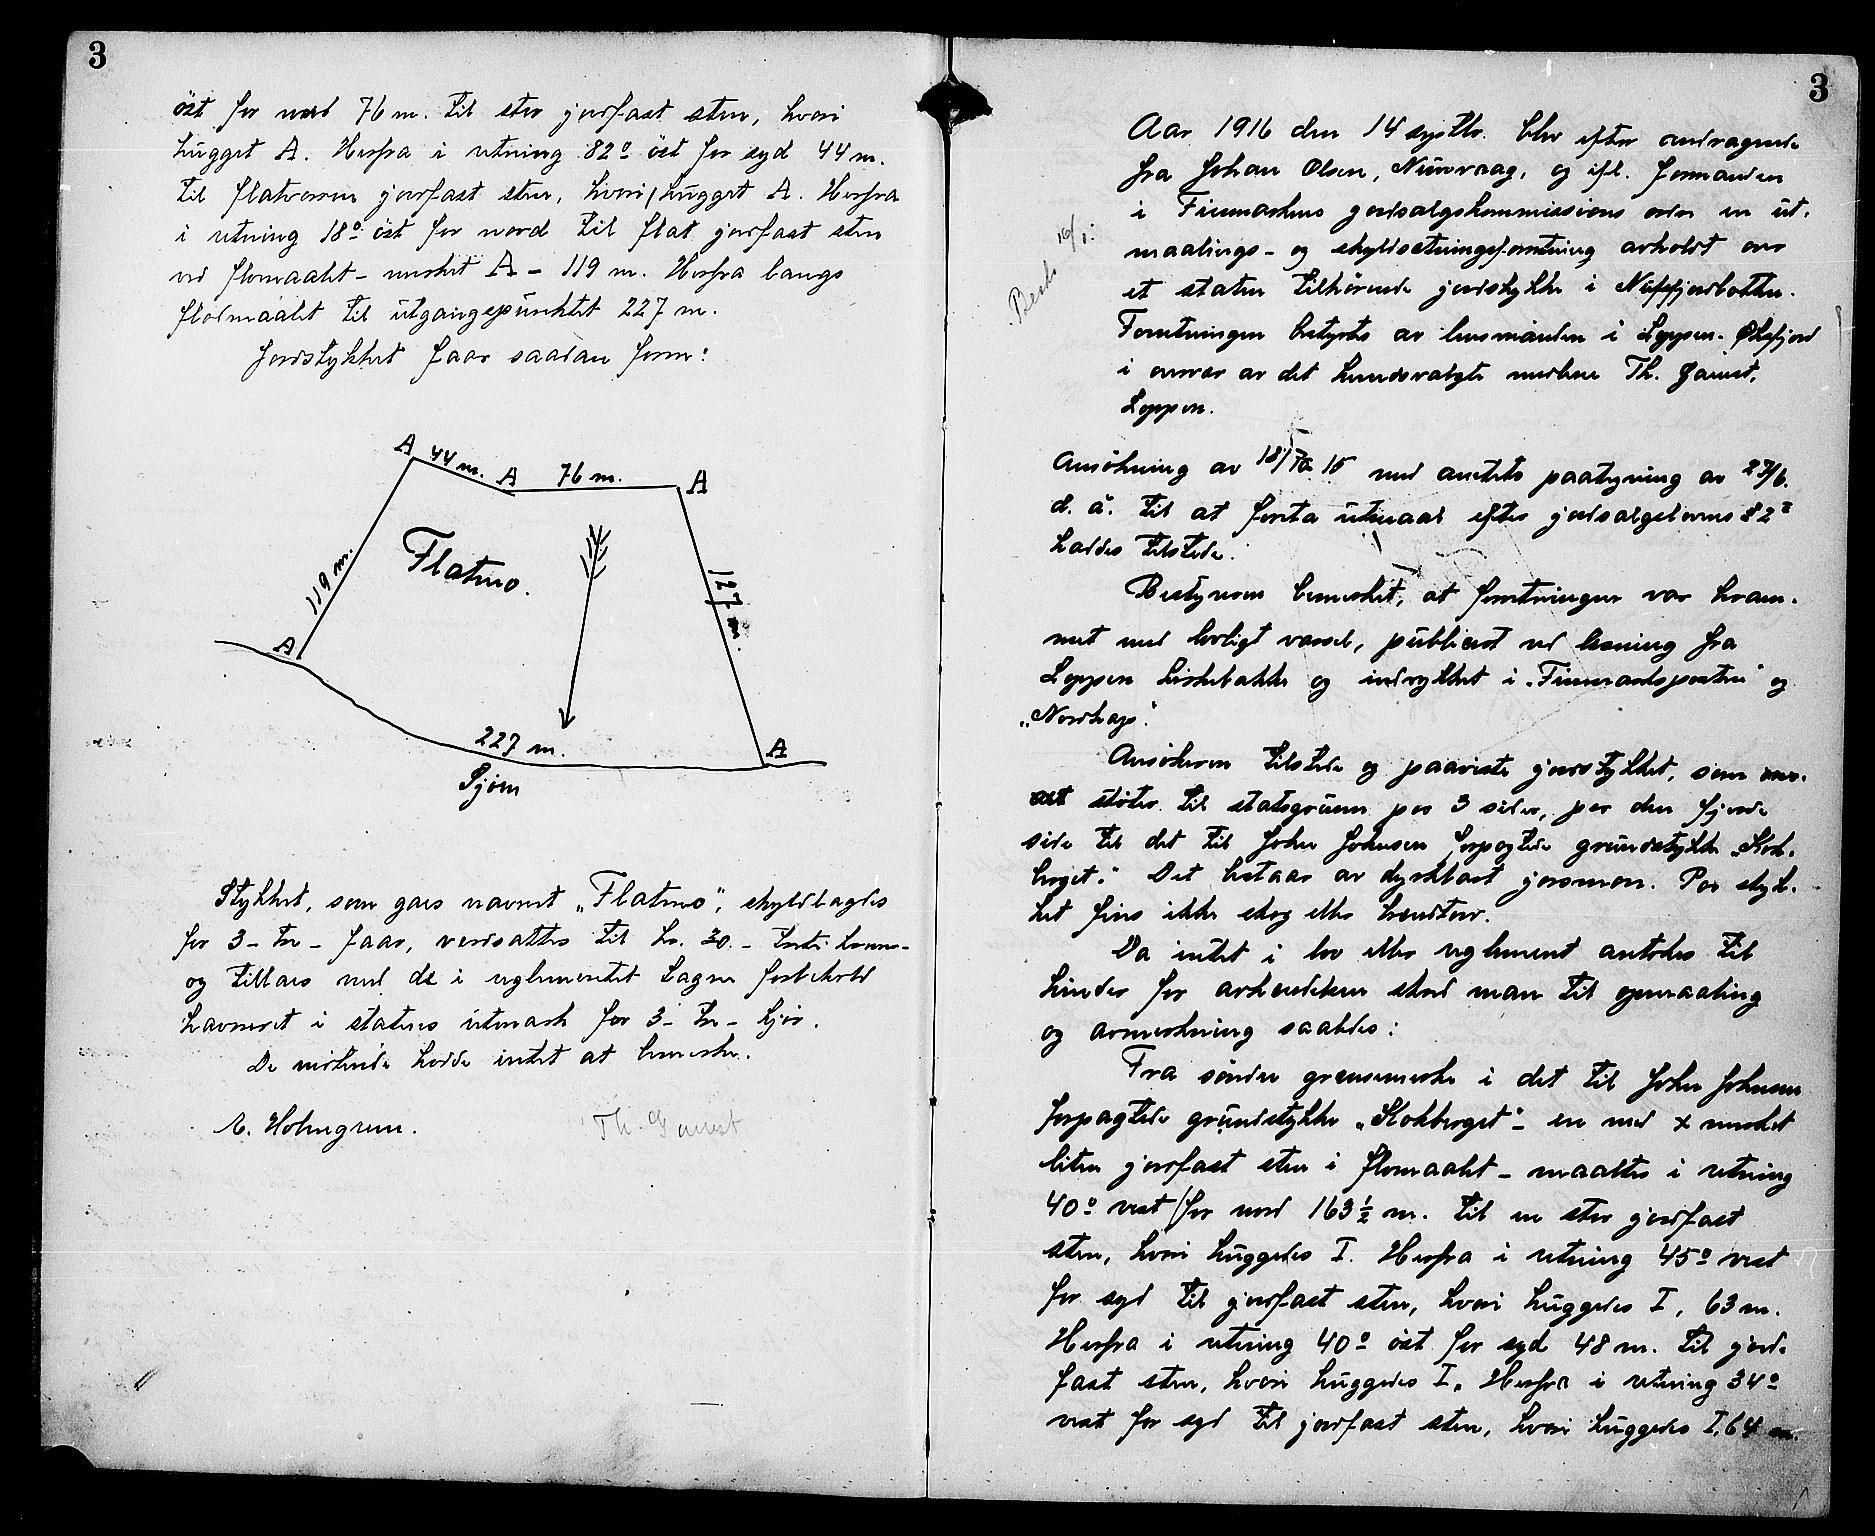 3
öst for nord 76 m. til stor jordfast sten, hvori
hugget A. Herfra i retning 82° öst for syd 44 m.
til flatvoren jordfast sten, hvori hugget A. Herfra
i retning 18° öst for nord til flat jordfast sten
ved flomaalet - merket A - 119 m. Herfra langs
flodmaalet til utgangspunktet 227 m.
Jordstykket faar saadan form:
A 44 m. A 76 m. A
119 m.
Flatmo.
127 m.
A
227 m.
A
Sjøen
Stykket, som gaes navnet „Flatmo", skyldlagdes
for 3 - tre - øre, verdsattes til kr. 30.-
og tillaes med de i reglementet tagne forbehold
havneret i statens utmark for 3 - tre - kjør.
De mötende hadde intet at bemerke.
A. Holmgren. Th. Garnest
3
Aar 1916 den 14 septbr. blev efter andragende
fra Johan Olsen, Nuvsvaag, og ifl. formanden
i Finmarkens jordsalgskommissions ordre en ut-
maalings- og skyldsetningsforretning avholdt over
et staten tilhørende jordstykke i Nuffjordbotten.
Forretningen bestyrtes av lensmanden i Loppen-Øksfjord
i overvær av det kundsvalgte medlem Th. Garnest,
Loppen.
Ansökning av 18/10 15 med amtets paategning av 27/6
d. å. til at foreta utmaal efter jordsalgslovens § 2
hadde tilstede.
Bestyreren bemerket, at forretningen var bram-
met med lovligt varsel, publisert ved læsning fra
Loppen kirkebakke og indrykket i „Finmarksposten" og
„Nordkap".
Ansökeren tilstede og paaviste jordstykket, som
støter til statsgrunn paa 3 sider, paa den fjerde
side til det til John Johnsen forpagtede grundstykke „Stok-
berget". Det bestaar av dyrkbart jordsmon. Paa styk-
ket fins ikke skog eller brændtorv.
Da intet i lov eller reglement antokes til
hinder for avhendelsen skred man til opmaaling
og avmerkning saaledes:
Fra søndre grensemerke i det til John Johnsen
forpagtede grundstykke „Stokberget" - en med x merket
liten jordfast sten i flomaalet - maaltes i retning
40° vest for nord 163 ½ m. til en stor jordfast
sten, hvori huggedes I. Herfra i retning 45° vest
for syd til jordfast sten, hvori huggedes I, 63 m.
Herfra i retning 40° öst for syd 48 m. til jord-
fast sten, hvori huggedes I. Herfra i retning 34°
vest for syd til jordfast sten, hvori huggedes I, 64 m.